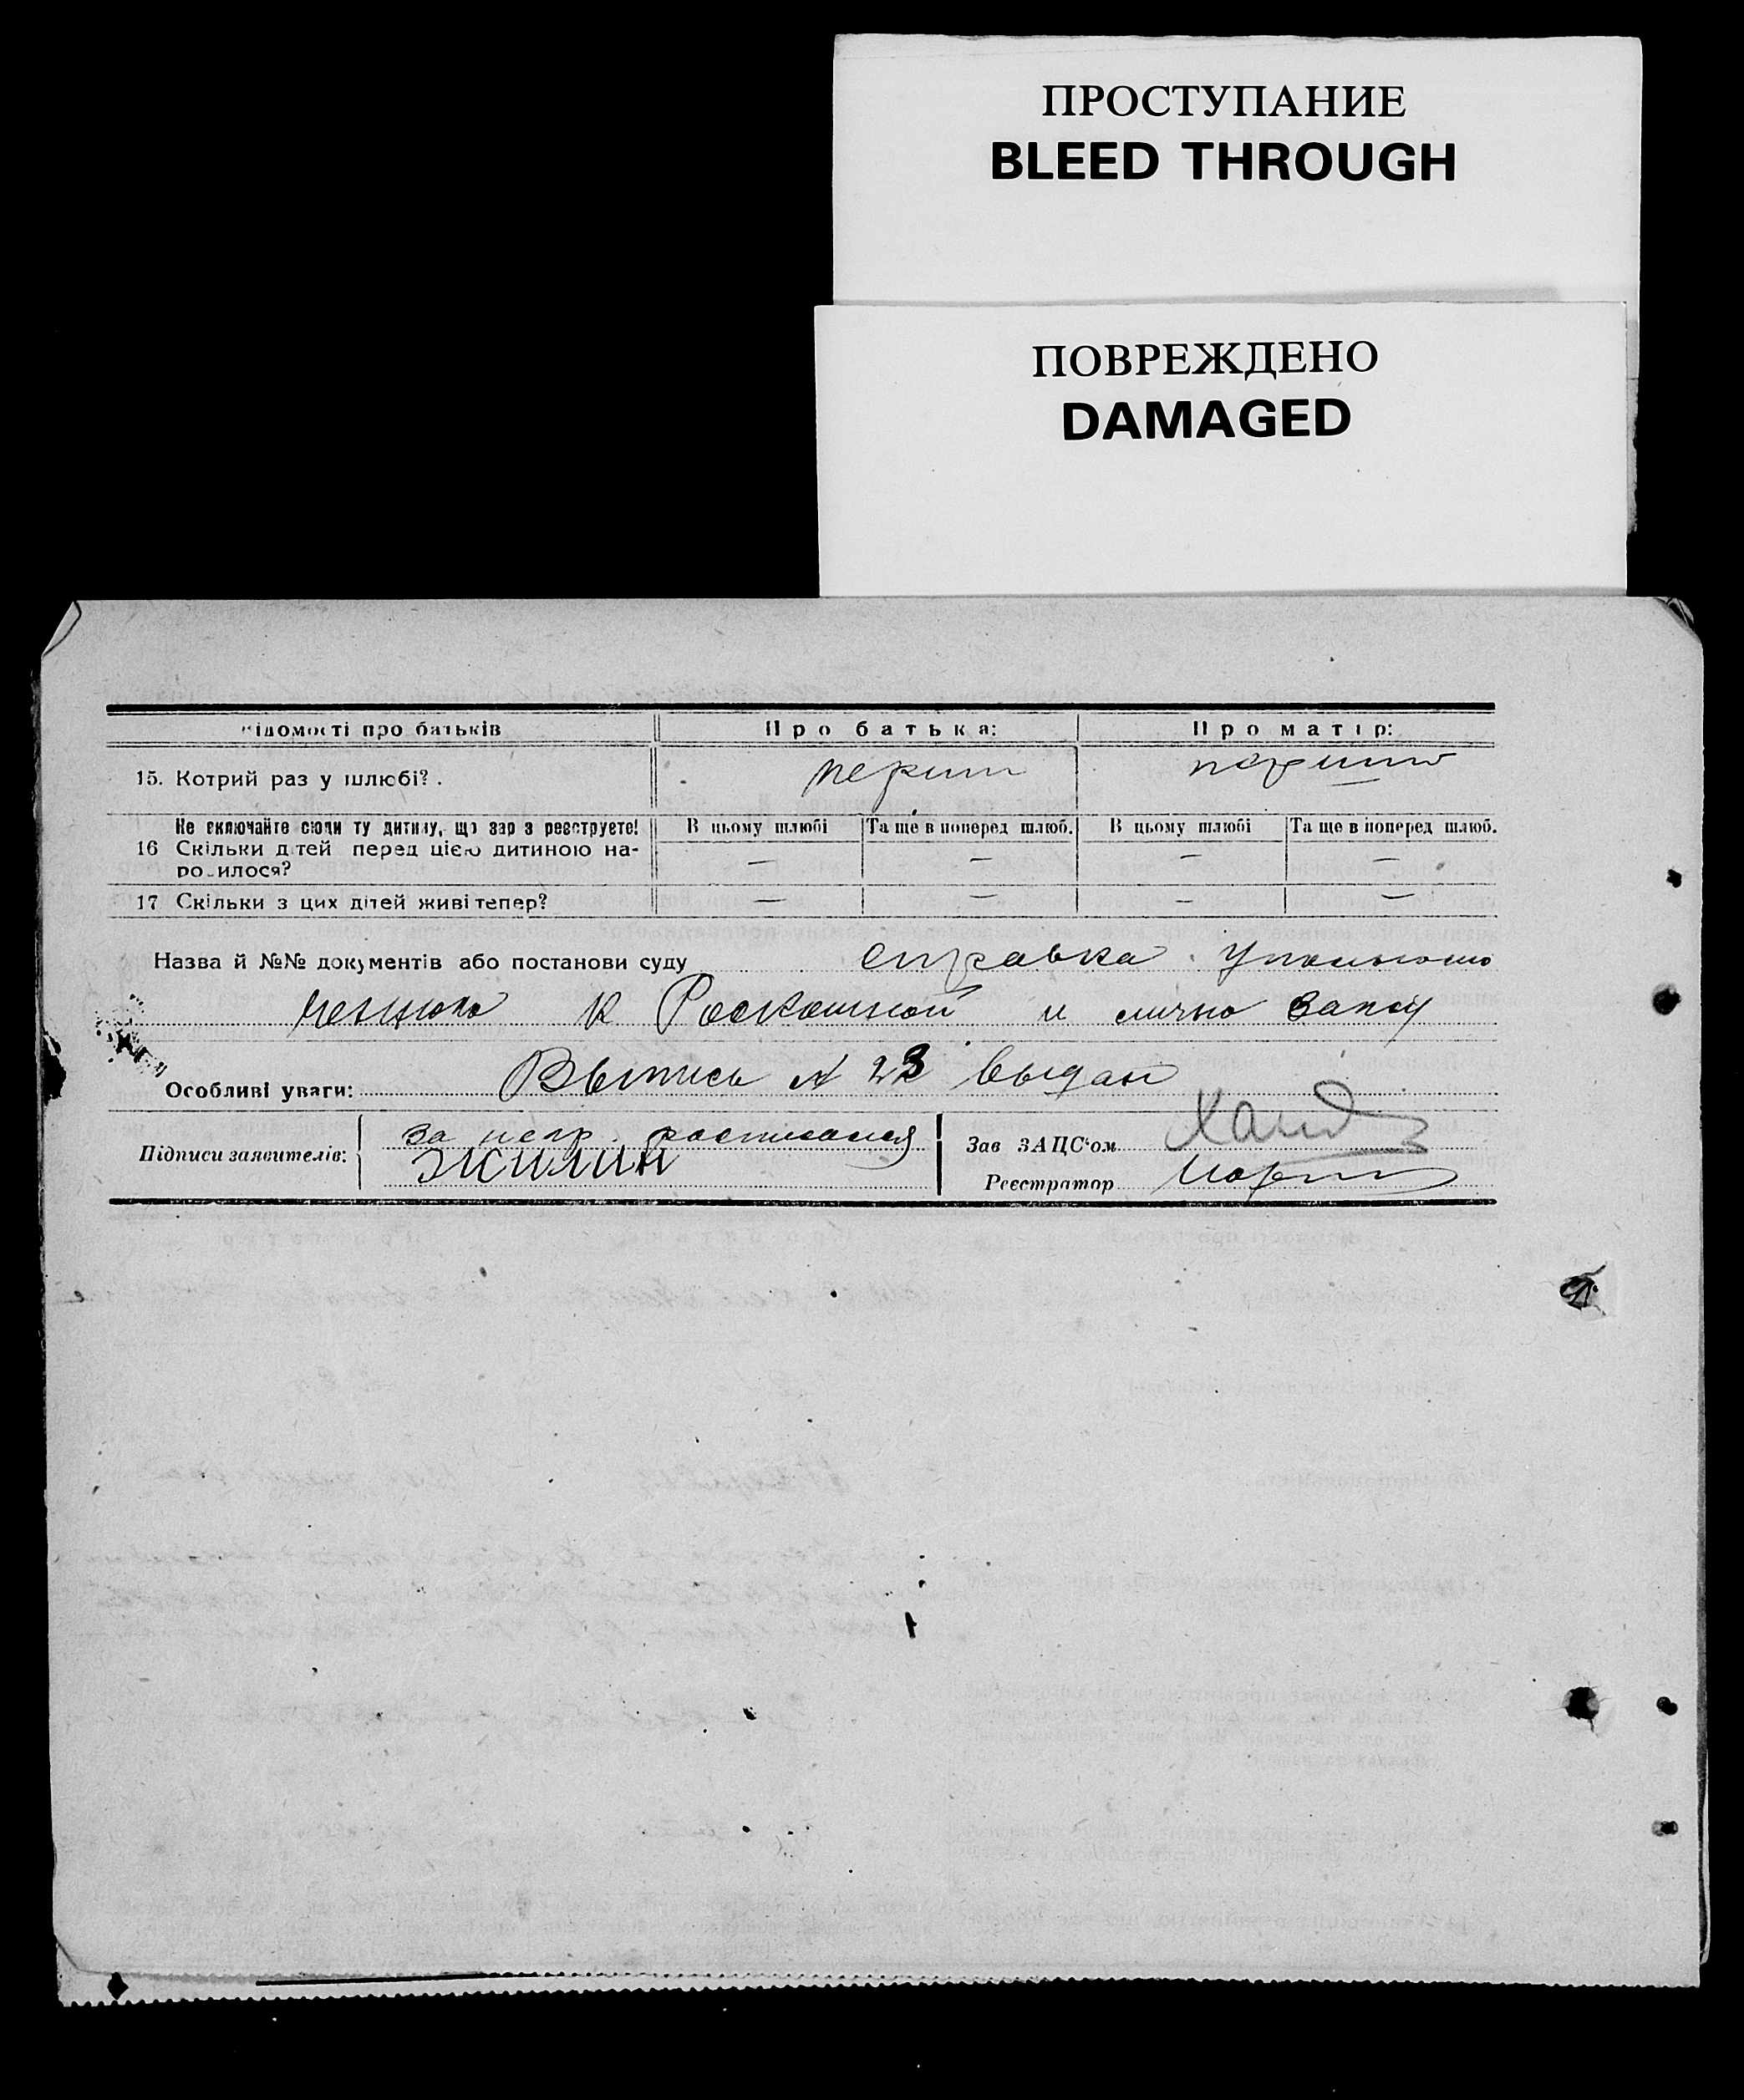 ПРОСТУПАНИЕ
BLEED THROUGH
ПОВРЕЖДЕНО
DAMAGED
ідомості про батьків Про батька: Про матір:
15. Котрий раз у шлюбі?.
Не включайте сюди ту дитину, що зар з реєструєте! В цьому шлюбі Та ще в поперед шлюб. В цьому шлюбі Та ще в поперед шлюб.
16 Скільки дітей перед цією дитиною на- — — — —
ро илося?
17 Скільки з цих дітей живі тепер? — — — —
Назва й №№ документів або постанови суду справка
к Роскошной и лично
Особливі уваги: Выпись № 23 выдан
Підписи заявителів: за негр. росписался Зав ЗАЦС'ом
Жилин
Реєстратор